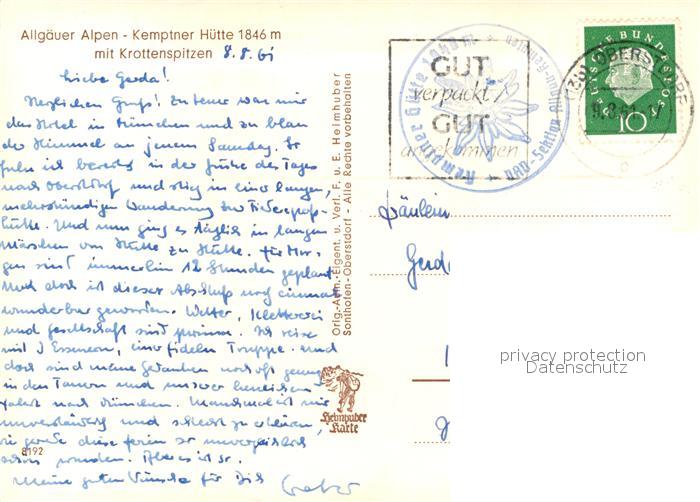 Allgäuer Alpen - Kemptner Hütte 1846 m
mit Krottenspitzen 8.8.61
Liebe Gerda!
Herzlichen Gruß! Zu teuer war mir
das Hotel in München und zu blau
der Himmel an jenem Samstag. So
fuhr ich bereits in der Frühe des Tages
nach Oberstdorf und stieg in einer langen,
mehrstündigen Wanderung zur Fiderepaß-
hütte. Und nun ging es täglich in langen
Märschen von Hütte zu Hütte. Für Mor-
gen sind immerhin 12 Stunden geplant.
Und doch ist dieser Abschluß noch einmal
wunderbar geworden. Wetter, Kletterei
und Gesellschaft sind prima. Ich reise
mit 3 Essenern, einer fidelen Truppe. Und
doch sind meine Gedanken noch oft genug
in den Tauern und unserer
Fahrt nach München. Manchmal ist mir
unverständlich und schlecht zu erklären,
wie gerade diese Ferien so unvergeßlich
schön wurden. Aber es ist so.
Meine guten Wünsche für Dich
8192
Orig.-Aufn.-Eigent. u. Verl. F. u. E. Heimhuber
Sonthofen-Oberstdorf - Alle Rechte vorbehalten
Heimhuber
Karte
GUT
verpackt
GUT
angekommen
Kemptner Hütte 1846 m
DAV-Sektion Allgäu-Kempten
DEUTSCHE BUNDESPOST
10
OBERSTDORF
9.8.61
Fräulein
Gerd
privacy protection
Datenschutz